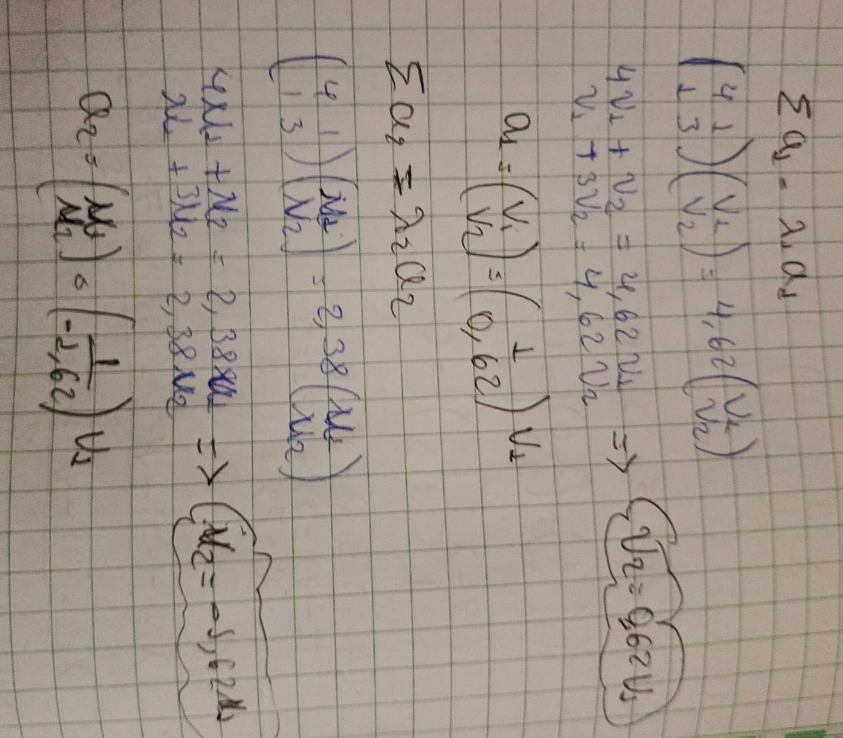 Σ a₁ = λ₁ a₁
(4 1 / 1 3) (v₁ / v₂) = 4,62 (v₁ / v₂)
4v₁ + v₂ = 4,62 v₁
v₁ + 3v₂ = 4,62 v₂ => v₂ = 0,62 v₁
a₁ = (v₁ / v₂) = (1 / 0,62) v₁
Σ a₂ = λ₂ a₂
(4 1 / 1 3) (μ₁ / μ₂) = 2,38 (μ₁ / μ₂)
4μ₁ + μ₂ = 2,38 μ₁
μ₁ + 3μ₂ = 2,38 μ₂ => μ₂ = -1,62 μ₁
a₂ = (μ₁ / μ₂) = (1 / -1,62) v₁